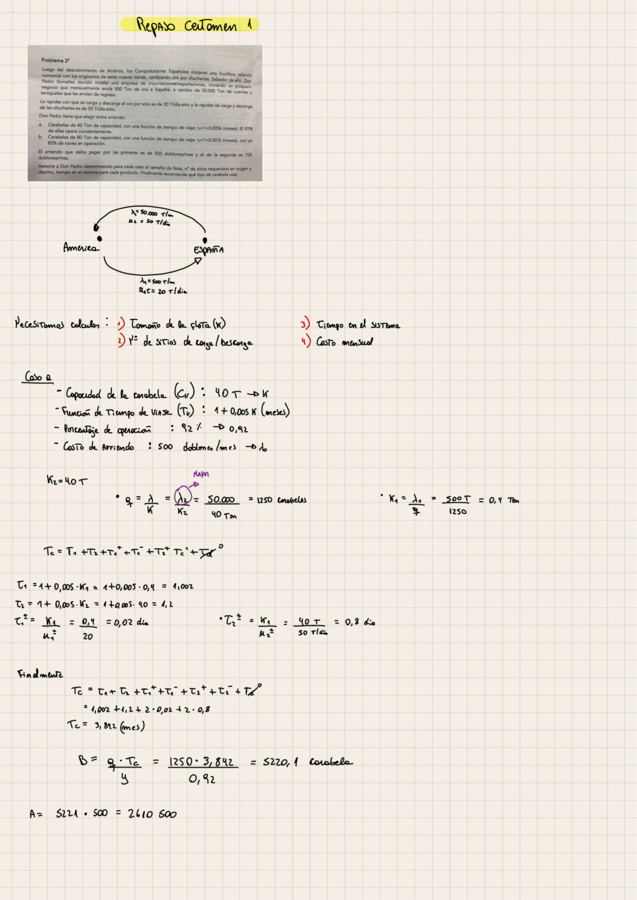 Repaso Certamen 1
Problema 2º
Luego del descubrimiento de América, los Conquistadores Españoles iniciaron una fructífera relación
comercial con los originarios de estas nuevas tierras, cambiando oro por chucherías. Sabedor de ello, Don
Pedro González decidió instalar una empresa de importaciones/exportaciones, iniciando un próspero
negocio que mensualmente envía 500 Ton de oro a España, a cambio de 50.000 Ton de cuentas y
lentejuelas que les envían de regreso.
La rapidez con que se carga y descarga el oro por sitio es de 20 T/día-sitio y la rapidez de carga y descarga
de las chucherías es de 50 T/día-sitio.
Don Pedro tiene que elegir entre arrendar:
a. Carabelas de 40 Ton de capacidad, con una función de tiempo de viaje: tv=1+0.005K (meses). El 92%
de ellas opera constantemente.
b. Carabelas de 80 Ton de capacidad, con una función de tiempo de viaje: tv=1+0.007K (meses), con un
85% de naves en operación.
El arriendo que debe pagar por las primeras es de 500 doblones/mes y el de la segunda es 700
doblones/mes.
Asesore a Don Pedro determinando para cada caso el tamaño de flota, nº de sitios requeridos en origen y
destino, tiempo en el sistema para cada producto. Finalmente recomiende qué tipo de carabela usar.
λ₂= 50.000 T/m
μ₂ = 50 T/día
América
ESPAÑA
λ₁= 500 T/m
= 20 T/día
Necesitamos calcular : 1) Tamaño de la flota (K) 3) Tiempo en el sistema
2) Nº de sitios de carga/descarga 4) Costo mensual
Caso a
- Capacidad de la carabela (Cv) : 40 T → K
- Función de Tiempo de Viaje (Tv) : 1 + 0,005 K (meses)
- Porcentaje de operación : 92 % → 0,92
- Costo de Arriendo : 500 doblones/mes →
K₂ = 40 T
Mayor
• q = λ/K = λ₂/K₂ = 50.000/40 Ton = 1250 carabelas • K₁ = λ₁/q = 500 T/1250 = 0,4 Ton
Tc = T₁ + T₂ + τ₁⁺ + τ₁⁻ + τ₂⁺ Tc⁻ + Td⁰
τ₁ = 1 + 0,005 · K₁ = 1 + 0,005 · 0,4 = 1,002
τ₂ = 1 + 0,005 · K₂ = 1 + 0,005 · 40 = 1,2
τ₁± = K₁/μ₁± = 0,4/20 = 0,02 día • τ₂± = K₁/μ₂± = 40 T/50 T/día = 0,8 día
Finalmente
Tc = τ₁ + τ₂ + τ₁⁺ + τ₁⁻ + τ₂⁺ + τ₂⁻ + Td⁰
= 1,002 + 1,2 + 2 · 0,02 + 2 · 0,8
Tc = 3,842 (mes)
B = q · Tc/y = 1250 · 3,842/0,92 = 5220,1 carabela
A = 5221 · 500 = 2610 500